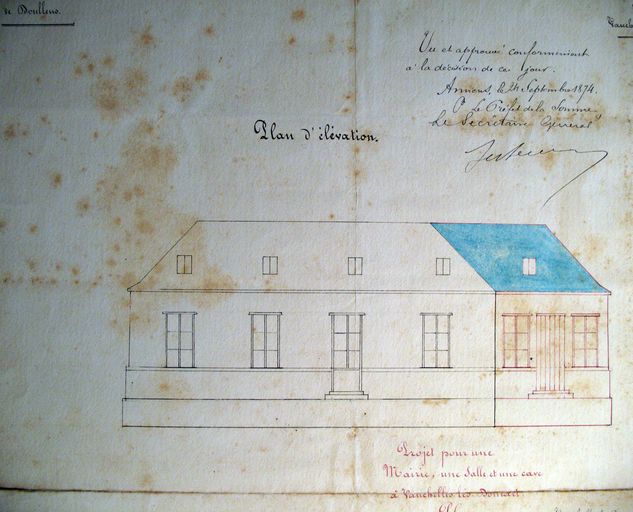 de Doullens.
Vu et approuvé conformément
à la décision de ce jour.
Amiens, le 24 Septembre 1874.
Pr Le Préfet de la Somme
Le Secrétaire Général
Plan d'élévation.
Projet pour une
Mairie, une Salle et une cave
à Vauchelles-les-Domart